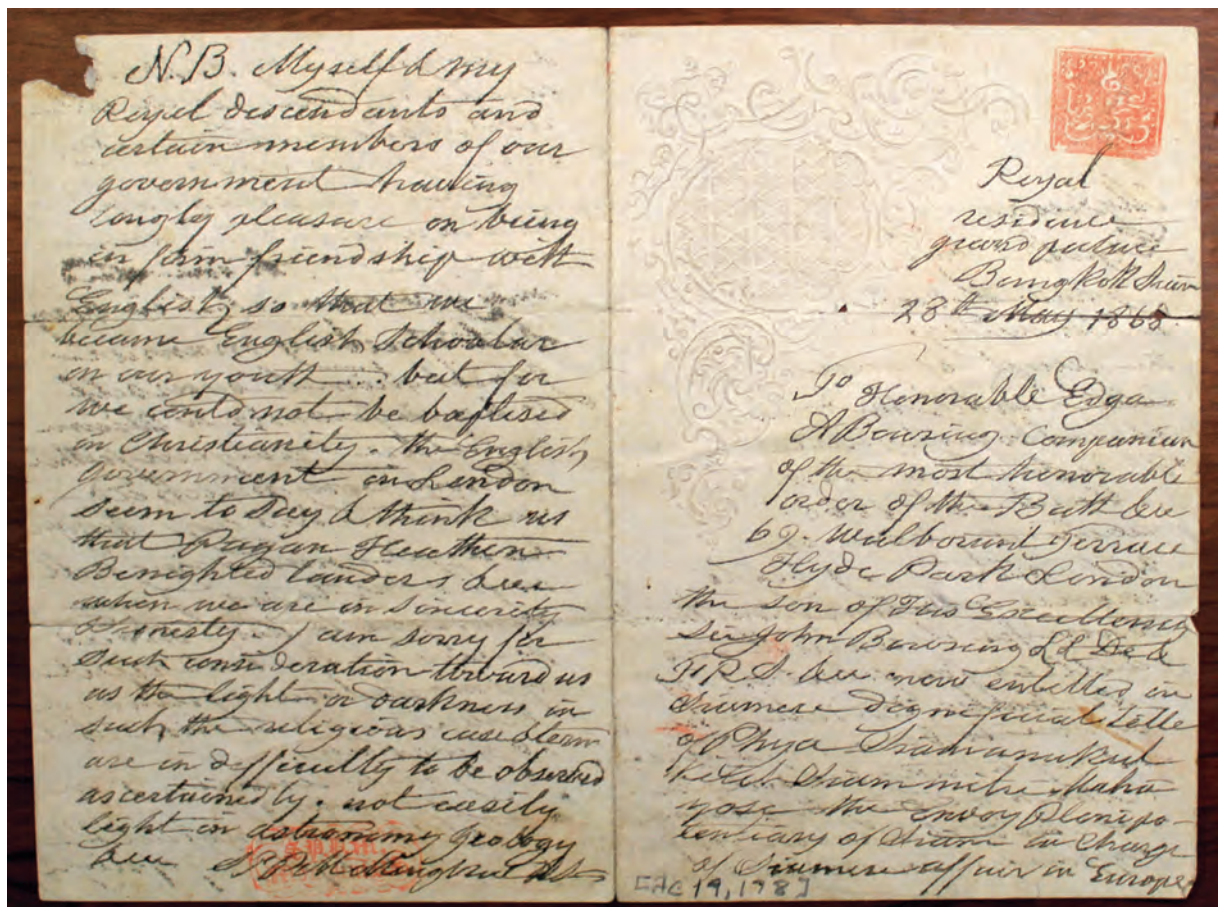 N.B. Myself & my
Royal descendants and
certain members of our
government having
longly pleasure on being
in firm friendship with
English, so that we
became English Schoolar
in our youth .. but for
we could not be baptised
in Christianity. the English
government in London
seem to say & think us
that Pagan Heathen
Benighted landers &ee
when we are in sincerity
Honesty. I am sorry for
such consideration toward us
as the light or darkness in
such the religious
are in difficulty to be observed
ascertained by. not easily
light in astronomy Geology
&ee S P P M Mongkut RS
Royal
residence
grand palace
Bangkok Siam
28th May 1868
To Honorable Edga
A Bowring Companion
of the most honorable
order of the Bath &ee
69. Terrace
Hyde Park London
the son of His Excellency
Sir John Bowring
F R S. &ee now entitled in
Siamese title
of Phya
Siammitr Maha
yose the Envoy Plenipo-
tenciary of Siam in Charge
of Siamese affair in Europe
[AC 19,178]